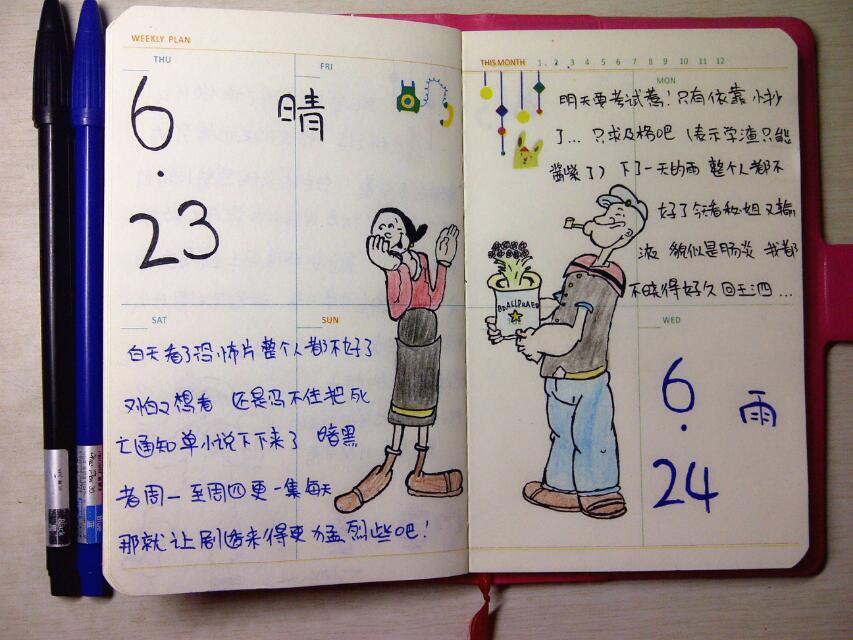 WEEKLY PLAN
THU
FRI
6.23
晴
SAT
SUN
白天看了恐怖片整个人都不好了
又怕又想看 还是忍不住把死
亡通知单小说下下来了 暗黑
者周一至周四更一集每天
那就让剧透来得更猛烈些吧!
THIS MONTH 1 2 3 4 5 6 7 8 9 10 11 12
MON
明天要考试惹!只有依靠小抄
了... 只求及格吧(表示学渣只能
酱紫了)下了一天的雨 整个人都不
好了 今看 秘姐又输
液 貌似是肠炎 我都
不晓得好久回去泗...
WED
6.24
雨